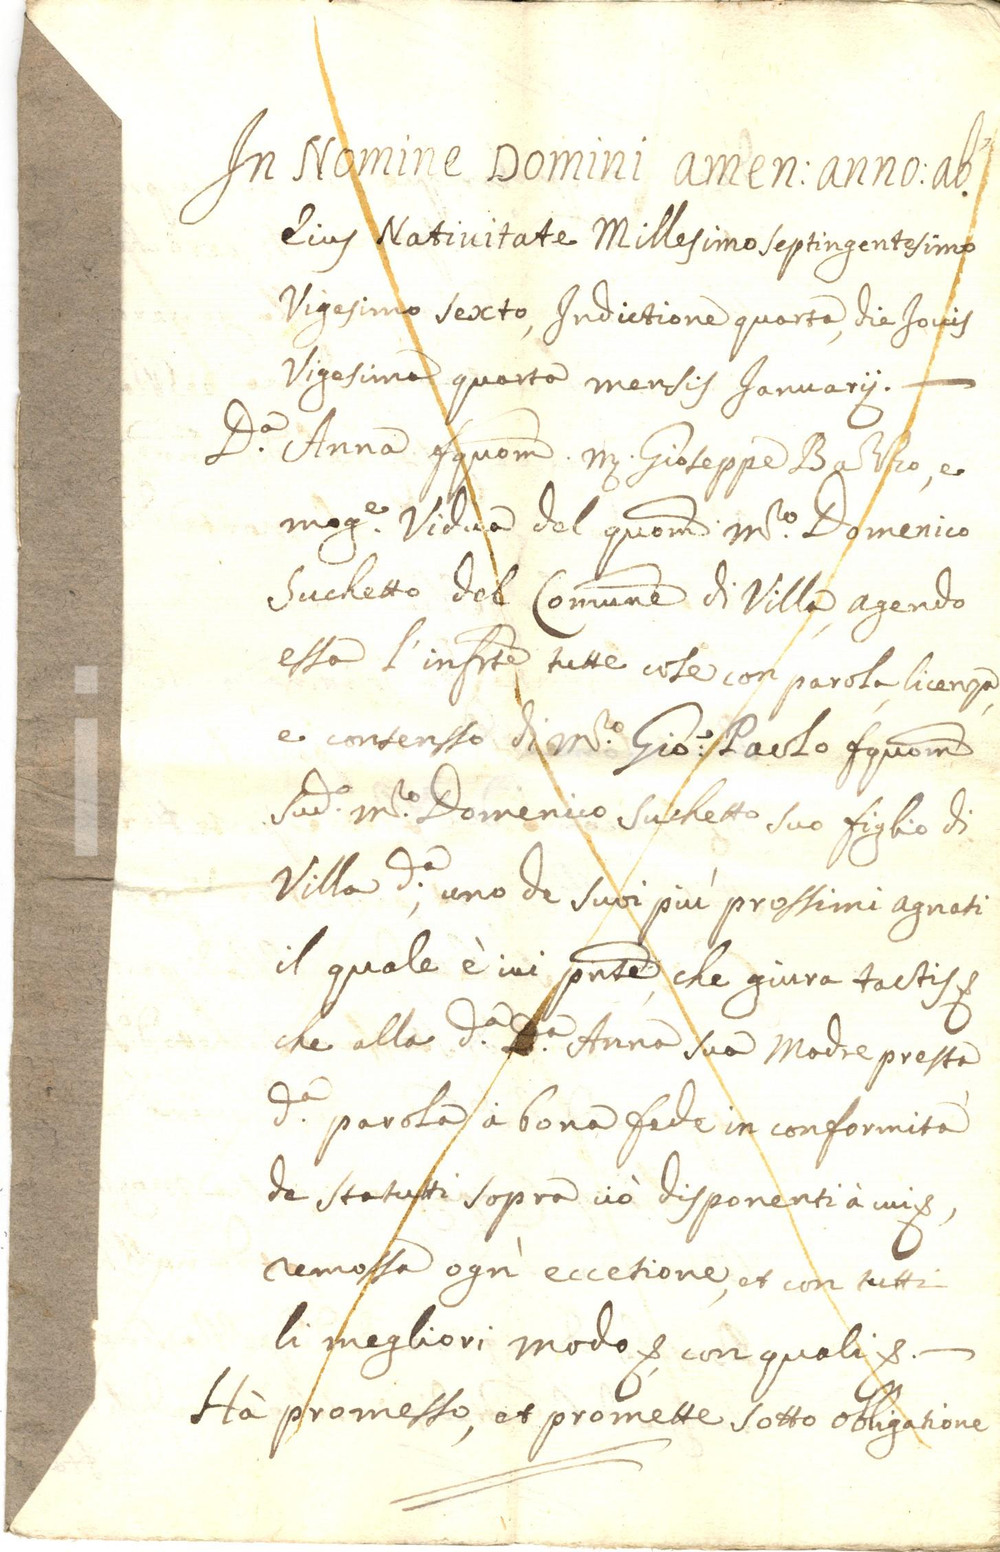 In Nomine Domini amen: anno: ab.
Eius Nativitate Millesimo septingentesimo
Vigesimo sexto, Indictione quarta, die Jovis
Vigesima quarta mensis Januarij.
D.a Anna fquom m. Gioseppe, e
mog.e Vidua del quom m.ro Domenico
Suchetto del Comune di Villa, agendo
essa l'infrte tutte cose con parola, licenza,
e consenso di m.ro Gio: Paolo fquom
sud.o m.ro Domenico Suchetto suo figlio di
Villa d.a, uno de suoi più prossimi agnati
il quale è ivi pnte, che giura tactis
che alla d.a D.a Anna sua Madre presta
d.a parola à bona fede in conformità
de statutti sopra ciò disponenti à cui,
remossa ogni eccetione, et con tutti
li megliori modo, con quali.
Hà promesso, et promette sotto obbligatione